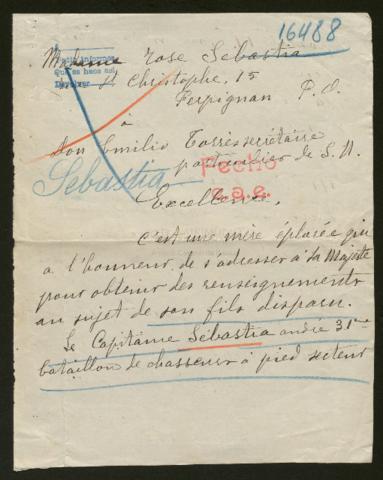 16488
Madame Rose Sébastia
St Christophe, 15
Perpignan P.O.
à
Don Emilio Torrès secrétaire
particulier de S. M.
Sebastia
Fecho
Excellence,
C'est une mère éplorée qui
a l'honneur de s'adresser à Sa Majesté
pour obtenir des renseignements
au sujet de son fils disparu.
Le Capitaine Sébastia André 31me
bataillon de chasseurs à pied secteur